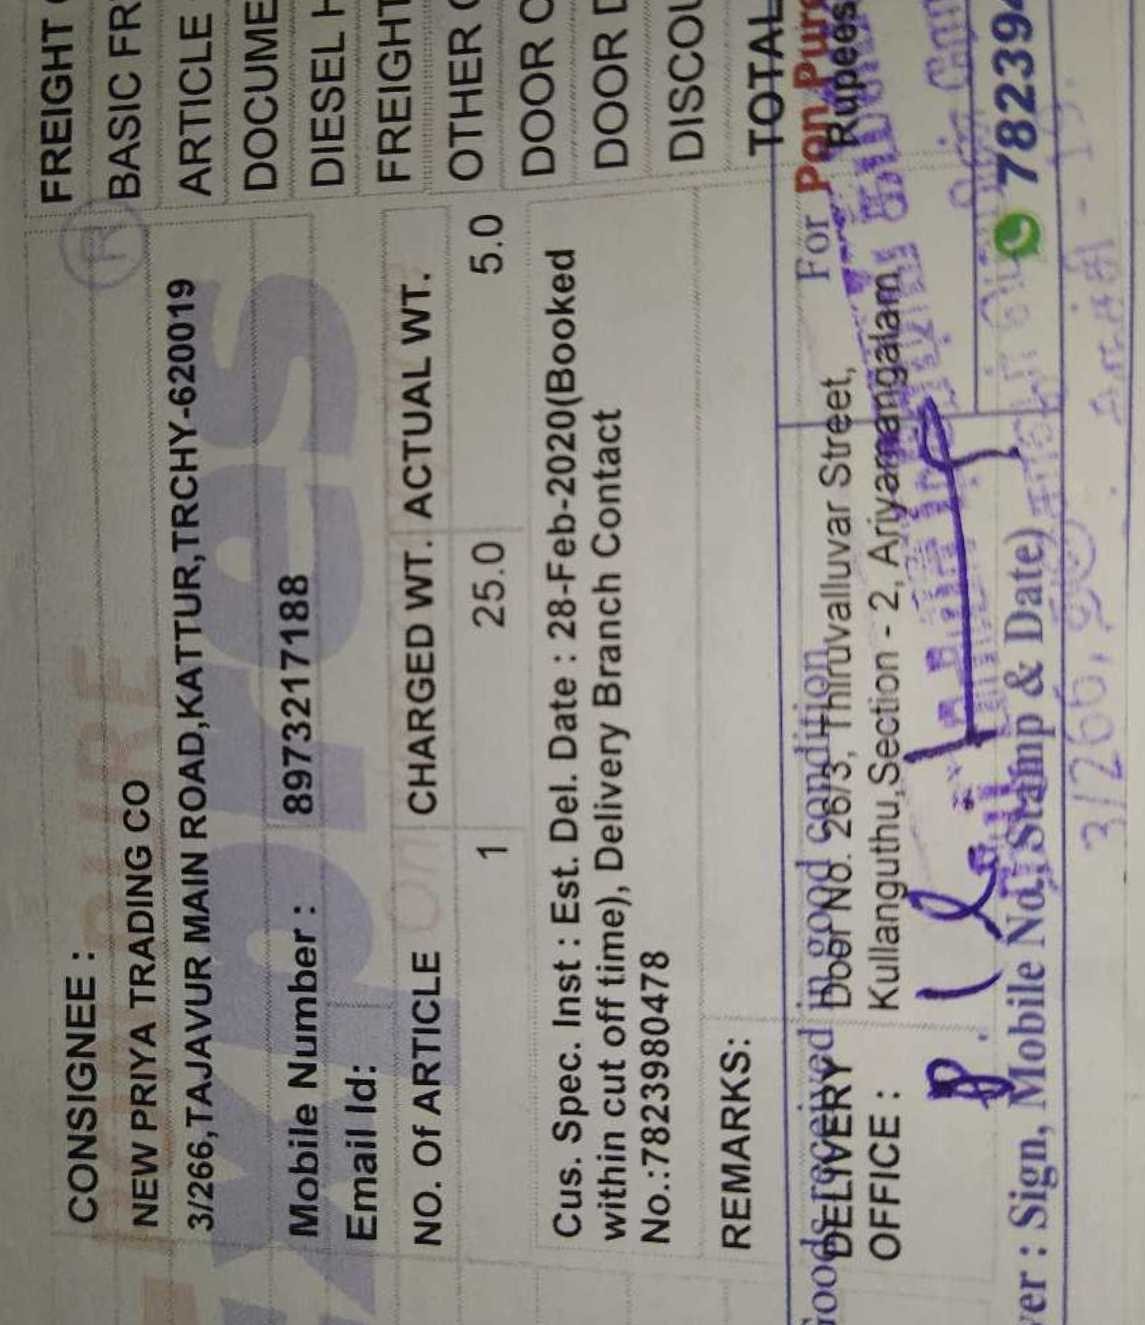 CONSIGNEE :
NEW PRIYA TRADING CO
3/266,TAJAVUR MAIN ROAD,KATTUR,TRCHY-620019
Mobile Number : 8973217188
Email Id:
NO. Of ARTICLE CHARGED WT. ACTUAL WT.
1 25.0 5.0
Cus. Spec. Inst : Est. Del. Date : 28-Feb-2020(Booked
within cut off time), Delivery Branch Contact
No.:7823980478
REMARKS:
Goods received in good condition
DELIVERY Door No. 26/3, Thiruvalluvar Street,
OFFICE : Kullanguthu,Section - 2, Ariyamangalam
ver : Sign, Mobile No., Stamp & Date)
FREIGHT
BASIC FR
ARTICLE
DOCUME
DIESEL H
FREIGHT
OTHER
DOOR
DOOR D
DISCOU
TOTAL
For Pon Pure
Rupees
78239
3/266,